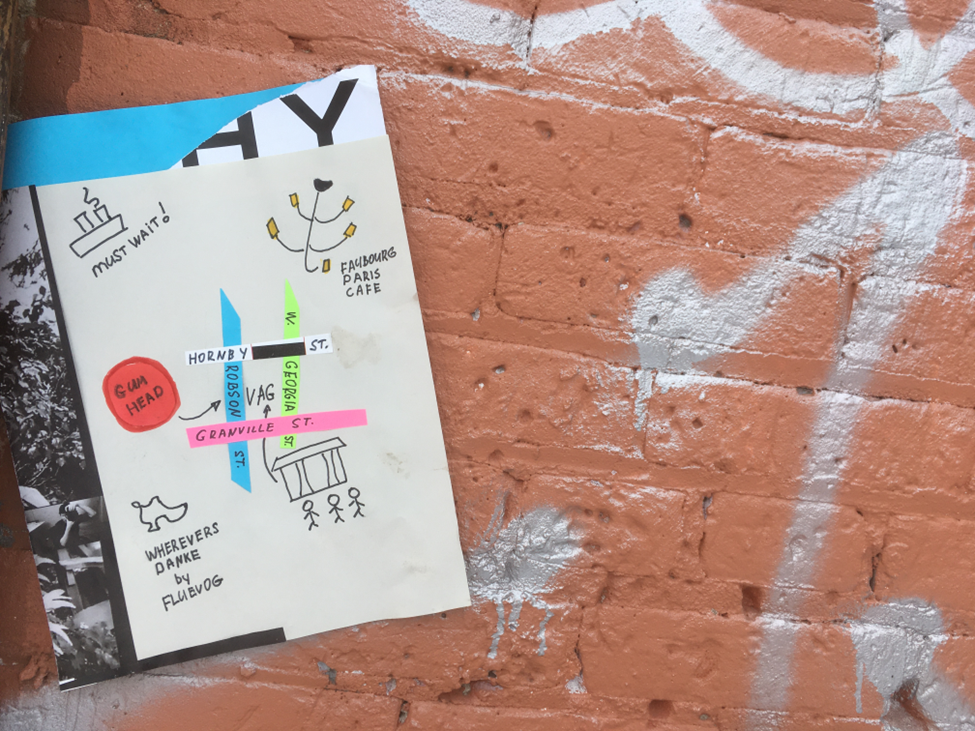 HY
MUST WAIT!
FAUBOURG
PARIS
CAFE
W. GEORGIA ST.
HORNBY ST.
ROBSON ST.
VAG
GUM
HEAD
GRANVILLE ST.
WHEREVERS
DANKE
by
FLUEVOG